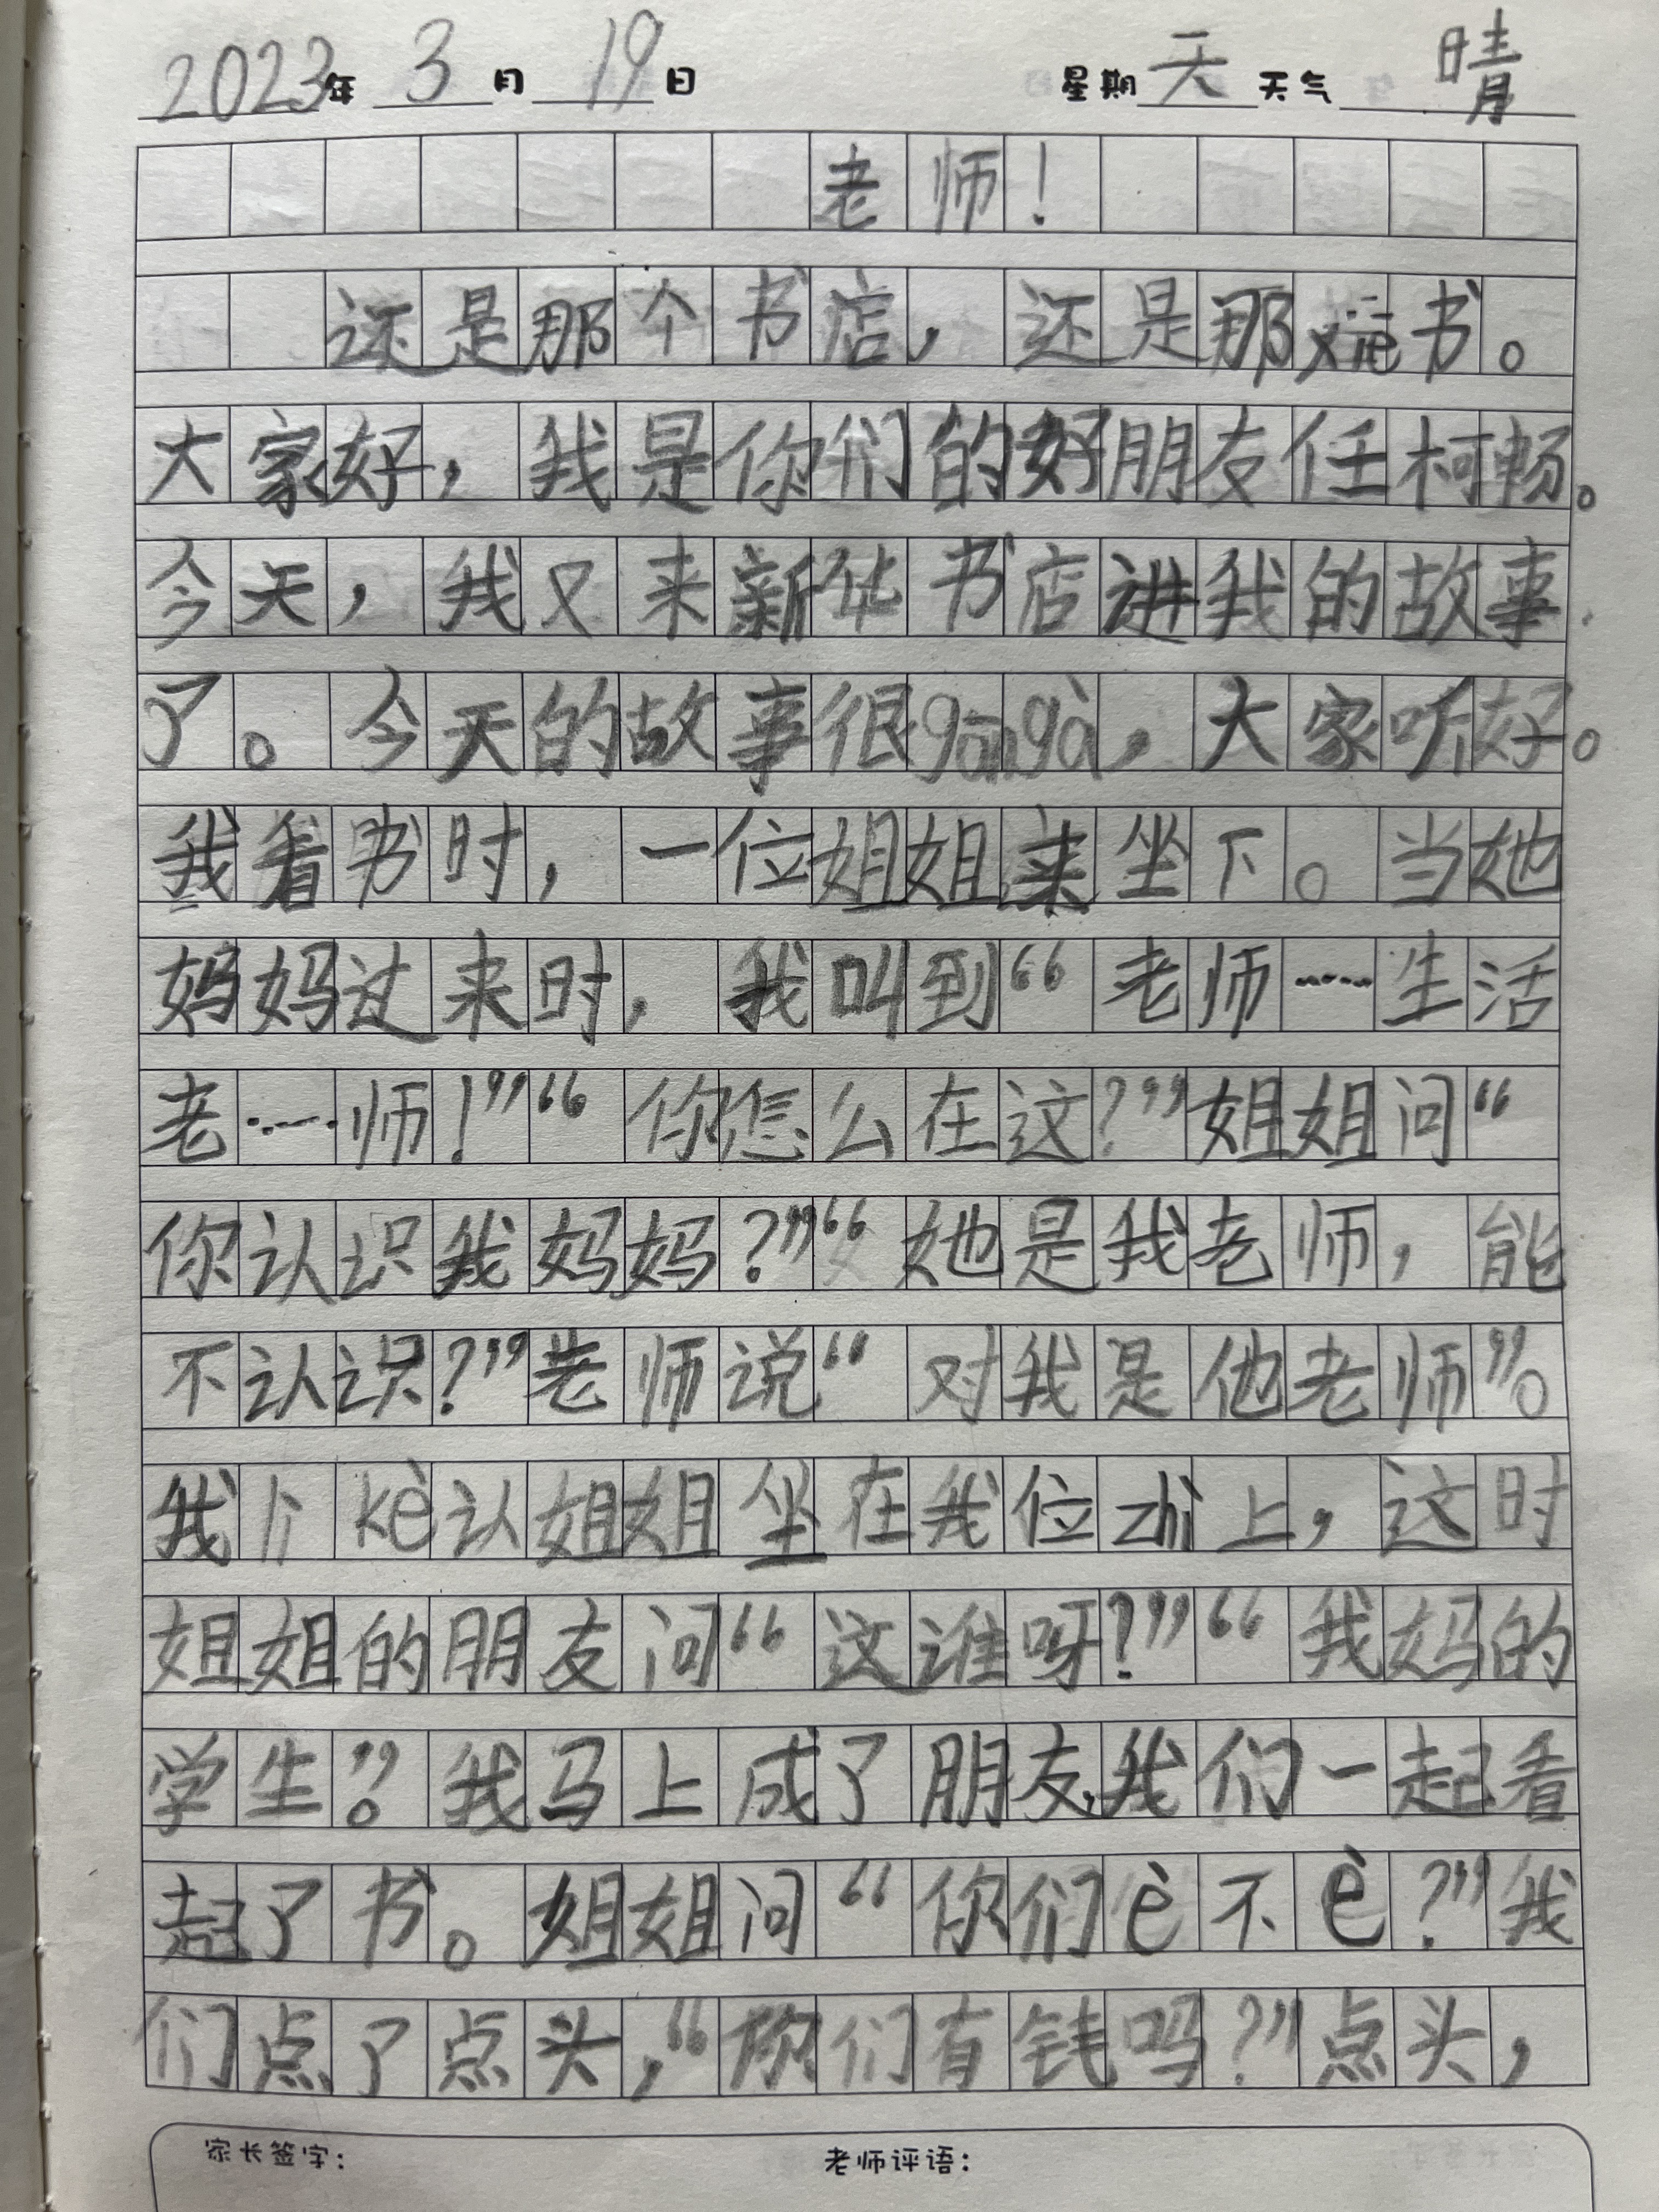 2023年 3 月 19 日 星期 天 天气 晴
老师！
还是那个书店，还是那xiē书。
大家好，我是你们的好朋友任柯畅。
今天，我又来新华书店进我的故事
了。今天的故事很gāngà，大家听好。
我看书时，一位姐姐来坐下。当她
妈妈过来时，我叫到“老师……生活
老……师！”“你怎么在这？”姐姐问“
你认识我妈妈？”“她是我老师，能
不认识？”老师说“对我是他老师”。
我 kè认姐姐坐在我位zhi上，这时
姐姐的朋友问“这谁呀？”“我妈的
学生”。我马上成了朋友，我们一起看
起了书。姐姐问“你们è不è？”我
们点了点头，“你们有钱吗？”点头，
家长签字： 老师评语：